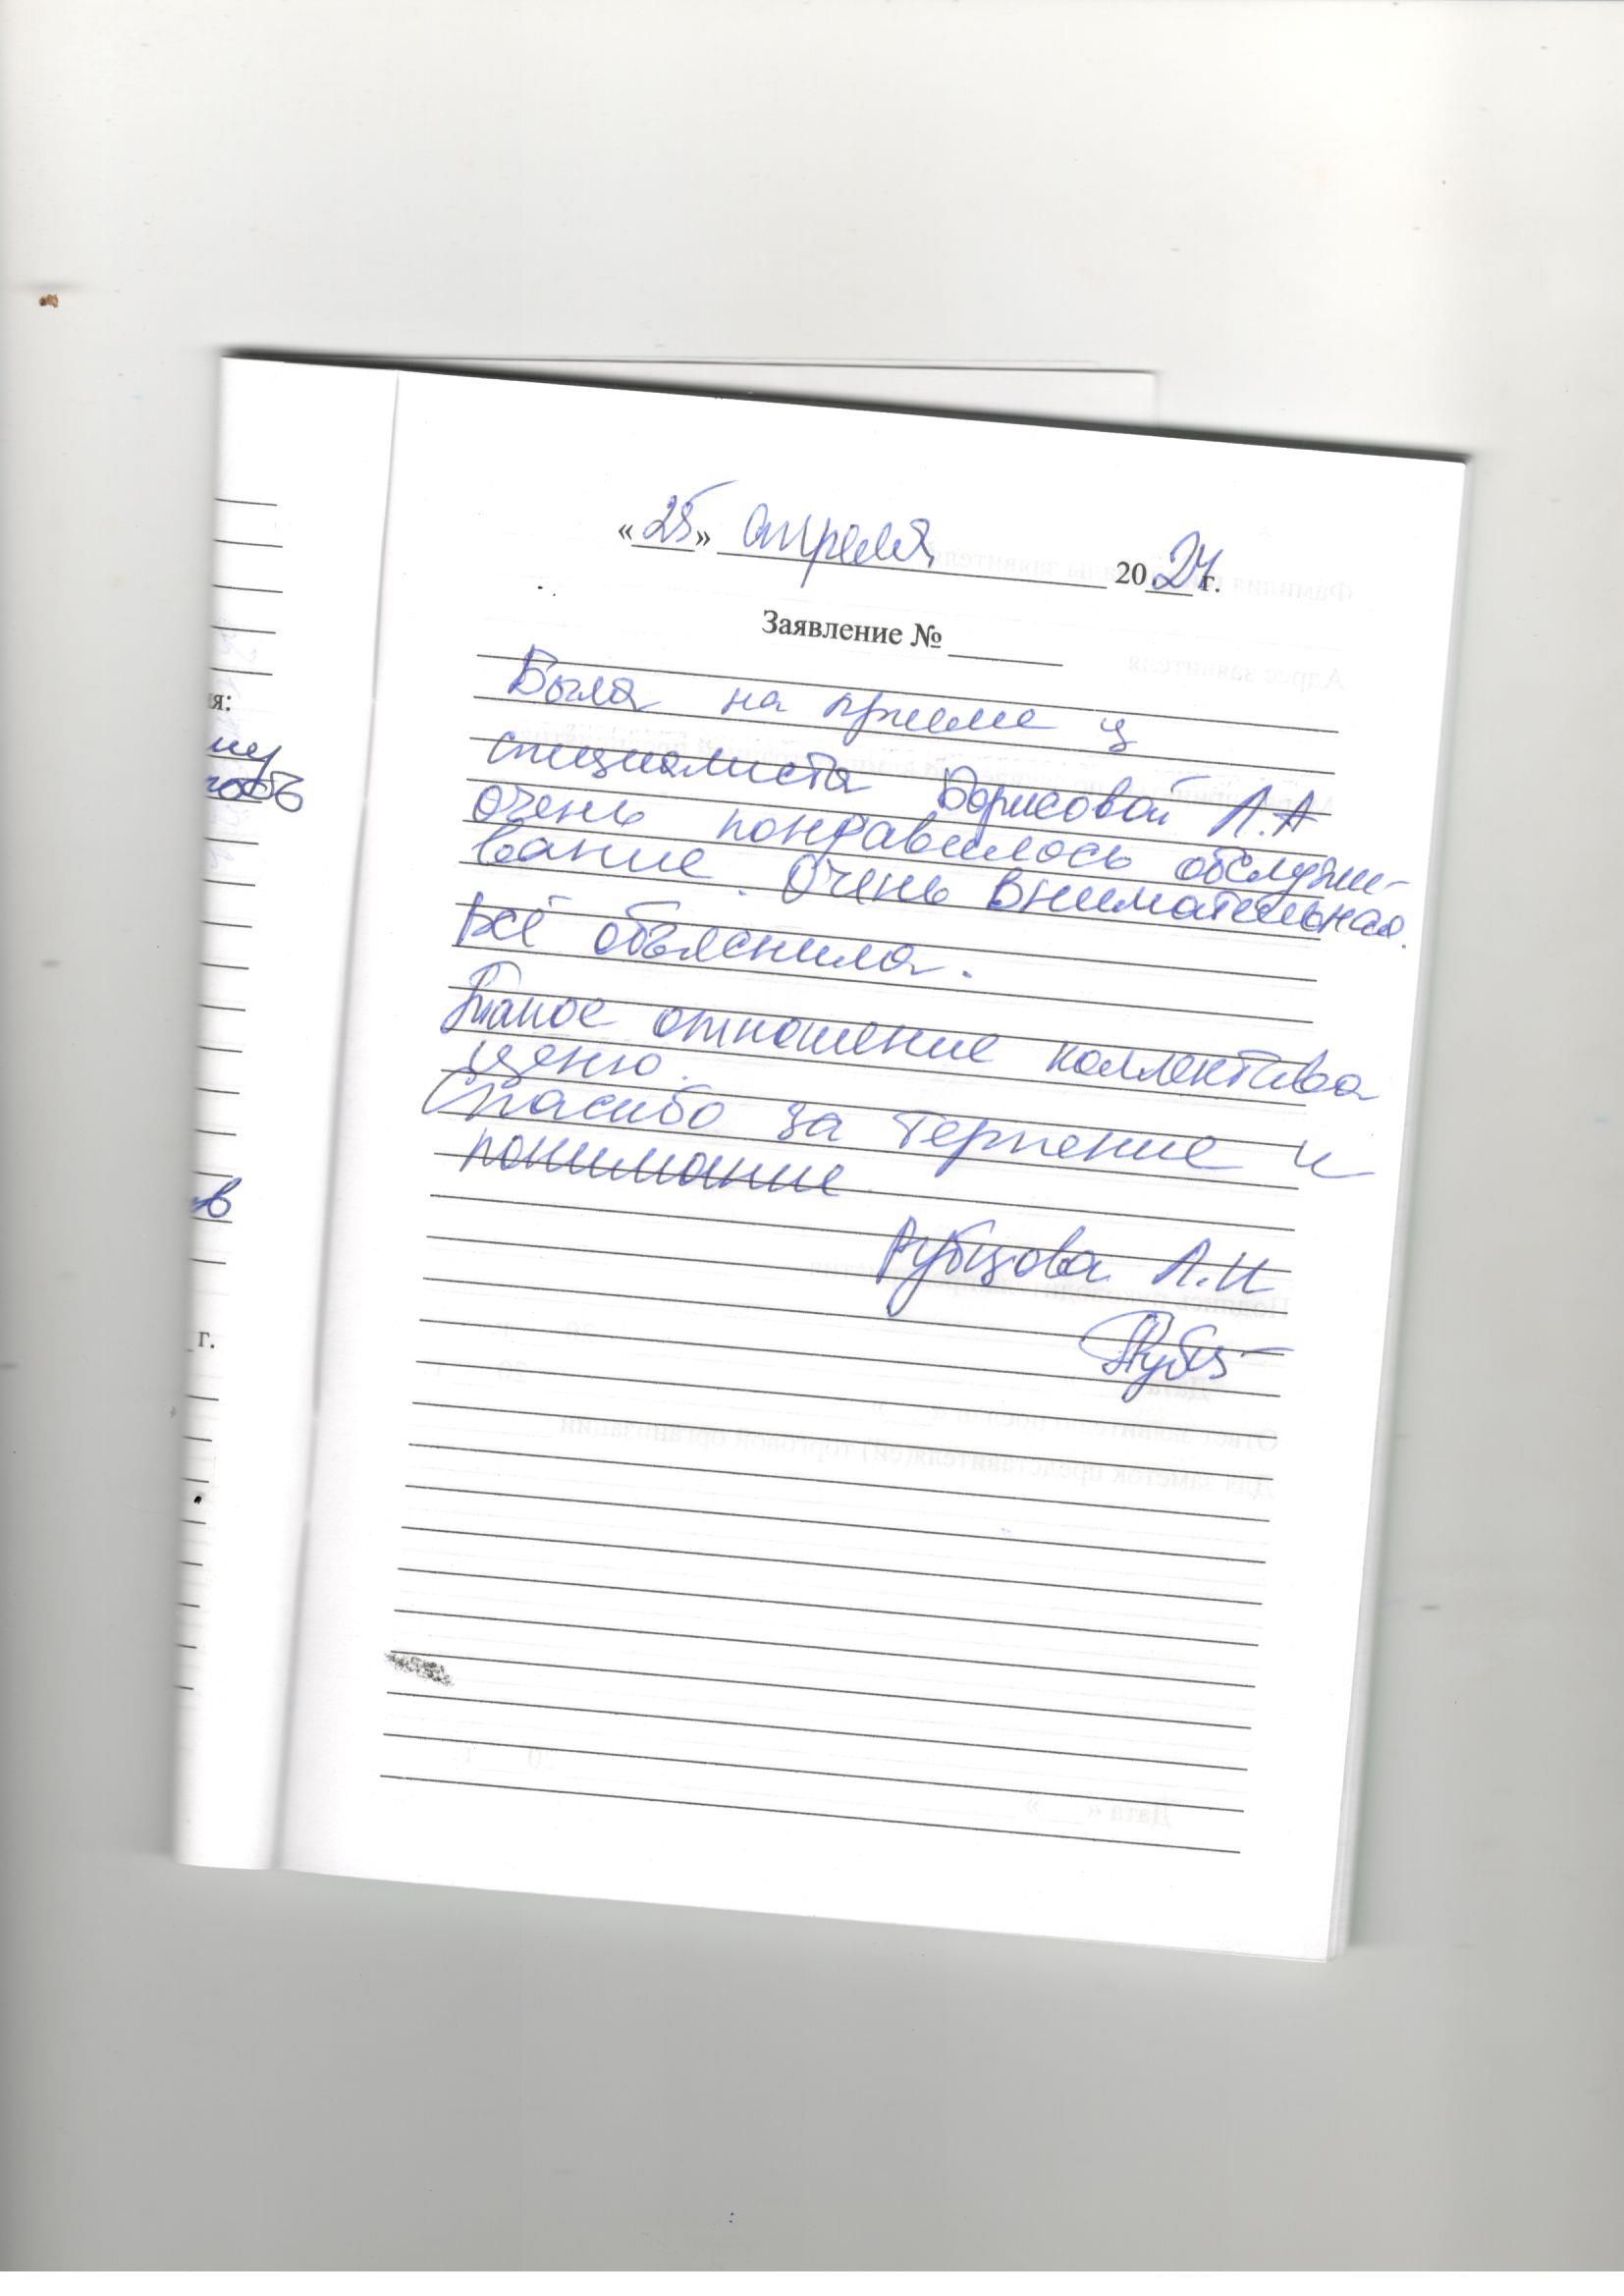 «25» апреля 2024 г.
Заявление №
Была на приеме у
специалиста Борисовой Л.А
очень понравилось обслужи-
вание. Очень внимательная.
Всё объяснила.
Такое отношение коллектива
ценю.
Спасибо за терпение и
понимание
Рубцова Л.И
Рубц
ия:
г.